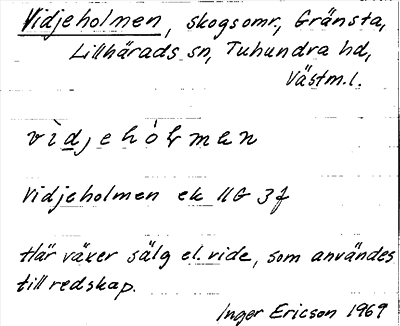 Vidjeholmen, skogsomr, Gränsta,
Lillhärads sn, Tuhundra hd,
Västm.l.
vìdjehòlmen
Vidjeholmen ek 11G 3f
Här växer sälg el. vide, som användes
till redskap.
Inger Ericson 1969